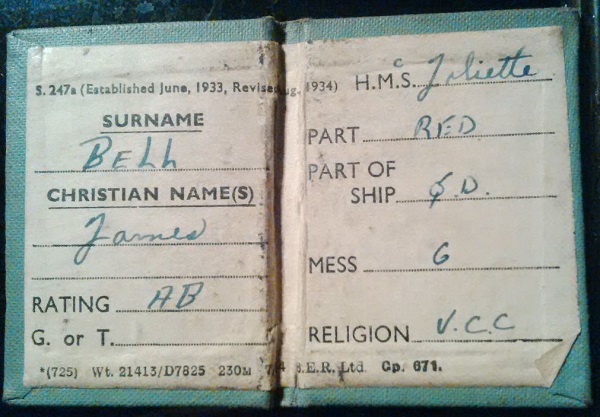 S. 247a (Established June, 1933, Revised Aug. 1934)
SURNAME
BELL
CHRISTIAN NAME(S)
James
RATING AB
G. or T.
*(725) Wt. 21413/D7825 230M 7/4 S.E.R. Ltd. Gp. 671.
H.M.S. Joliette
PART RED
PART OF
SHIP Q.D.
MESS 6
RELIGION U.C.C